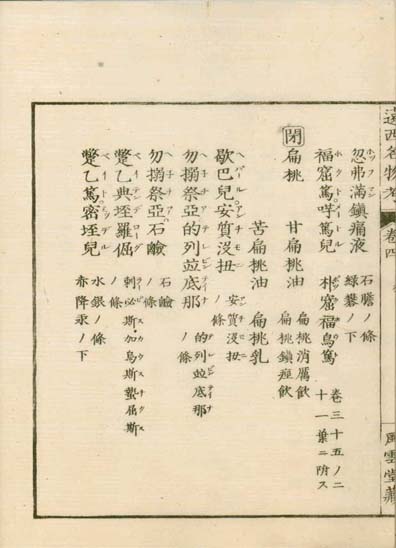 遠西名物考 卷四
風雲堂藏
忽弗滿鎭痛液 石膽ノ條 綠礬ノ下
福窟篤哱篤兒 朴窟福烏篤 卷三十五ノ二十一葉ニ附ス
閉
扁桃 甘扁桃油 扁桃消厲飲 扁桃鎭痙飲
苦扁桃油 扁桃乳
歇巴兒安質沒扭 安質沒扭ノ條
勿搦祭亞的列並底那 的列並底那ノ條
勿搦祭亞石鹼 石鹼ノ條
蹩乙典垤羅倔 刺必斯加烏斯蟄倔斯ノ條
蹩乙篤密垤兒 水銀ノ條 赤降汞ノ下